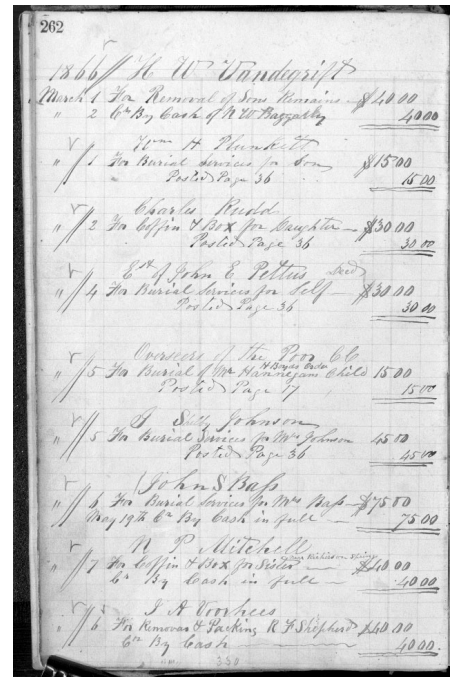 262
1866 H W Vandegrift
March 1 For Removal of Sons Remains $40 00
" 2 Cr By Cash of N W Baggatly 40 00
Wm H Plunkett
" 1 For Burial Services for Son $15 00
Posted Page 36 15 00
Charles Rudd
" 2 For Coffin & Box for Daughter $30 00
Posted Page 36 30 00
Est of John E Pettus Decd
" 4 For Burial Services for Self $30 00
Posted Page 36 30 00
Overseers of the Poor C C
" 5 For Burial of Mr Hannegans Child 15 00
Posted Page 17 15 00
J Johnson
" 5 For Burial Services for Mrs Johnson 45 00
Posted Page 36 45 00
John S Bass
" 6 For Burial Services for Mrs Bass $75 00
May 19th Cr By Cash in full 75 00
N P Mitchell
" 7 For Coffin & Box for Sister $40 00
Cr By Cash in full 40 00
J A Voorhees
" 6 For Removal & Packing R F Shepherd $40 00
Cr By Cash 40 00
330